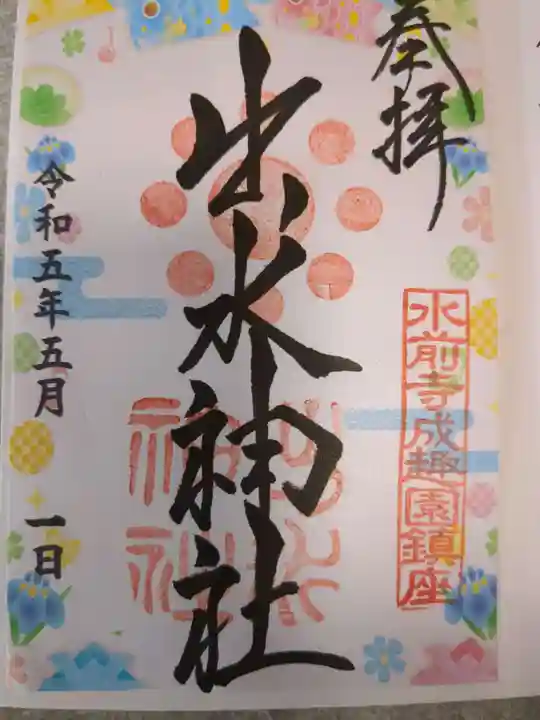 奉拝
水前寺成趣園鎮座
出水神社
出水
神社
令和五年五月 一日